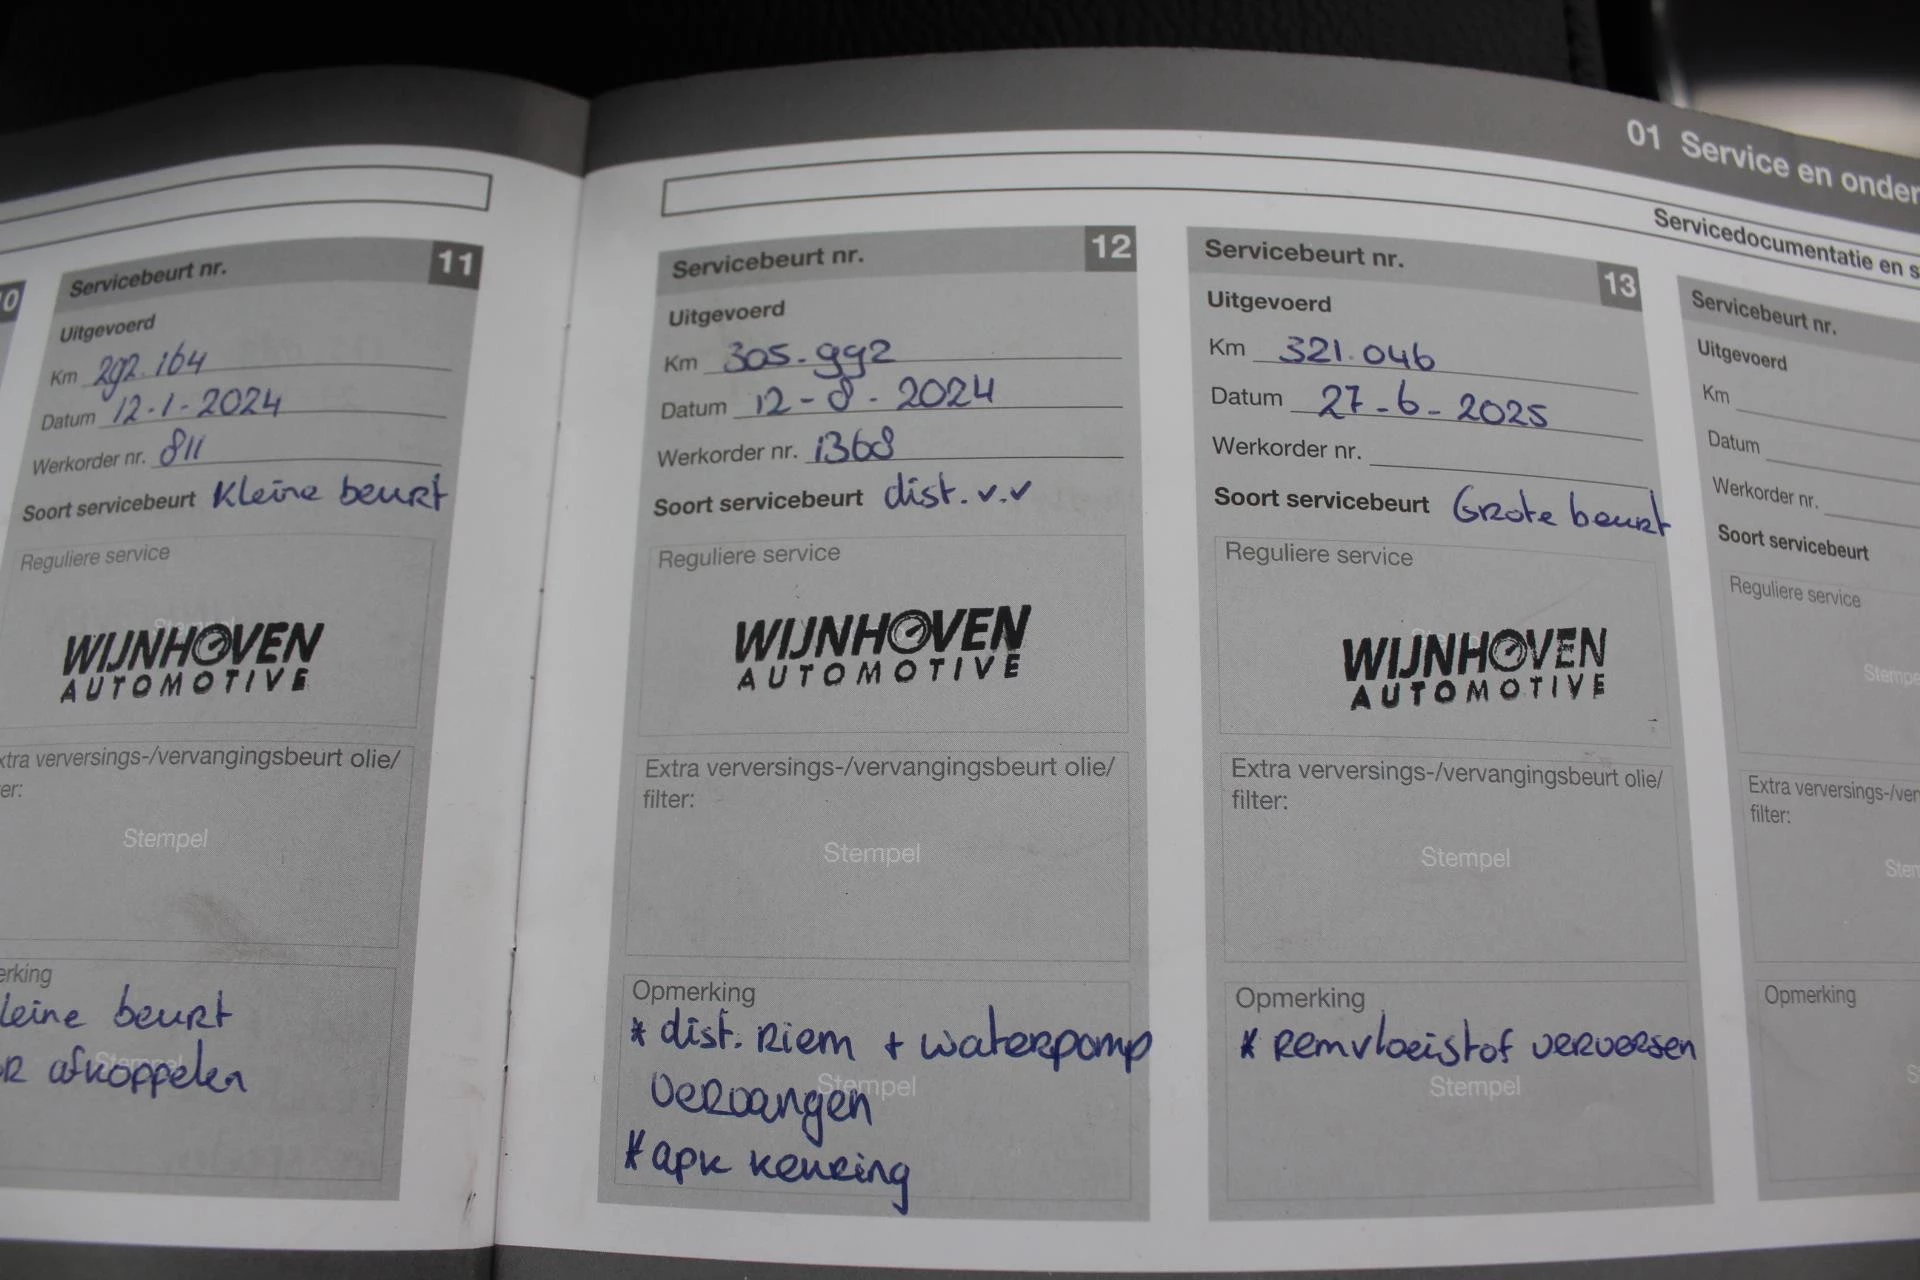 01 Service en onder
Servicedocumentatie en s
Servicebeurt nr. 11
Uitgevoerd
Km 292.164
Datum 12-1-2024
Werkorder nr. 811
Soort servicebeurt Kleine beurt
Reguliere service
WIJNHOVEN
AUTOMOTIVE
xtra verversings-/vervangingsbeurt olie/
er:
Stempel
erking
leine beurt
Stempel
R afkoppelen
Servicebeurt nr. 12
Uitgevoerd
Km 305.992
Datum 12-8-2024
Werkorder nr. 1368
Soort servicebeurt dist. v.v
Reguliere service
WIJNHOVEN
AUTOMOTIVE
Extra verversings-/vervangingsbeurt olie/
filter:
Stempel
Opmerking
* dist. Riem + waterpomp
Stempel
vervangen
* apk keuring
Servicebeurt nr. 13
Uitgevoerd
Km 321.046
Datum 27-6-2025
Werkorder nr.
Soort servicebeurt Grote beurt
Reguliere service
WIJNHOVEN
AUTOMOTIVE
Extra verversings-/vervangingsbeurt olie/
filter:
Stempel
Opmerking
* Remvloeistof verversen
Stempel
Servicebeurt nr.
Uitgevoerd
Km
Datum
Werkorder nr.
Soort servicebeurt
Reguliere service
Stempe
Extra verversings-/ver
filter:
Sten
Opmerking
S